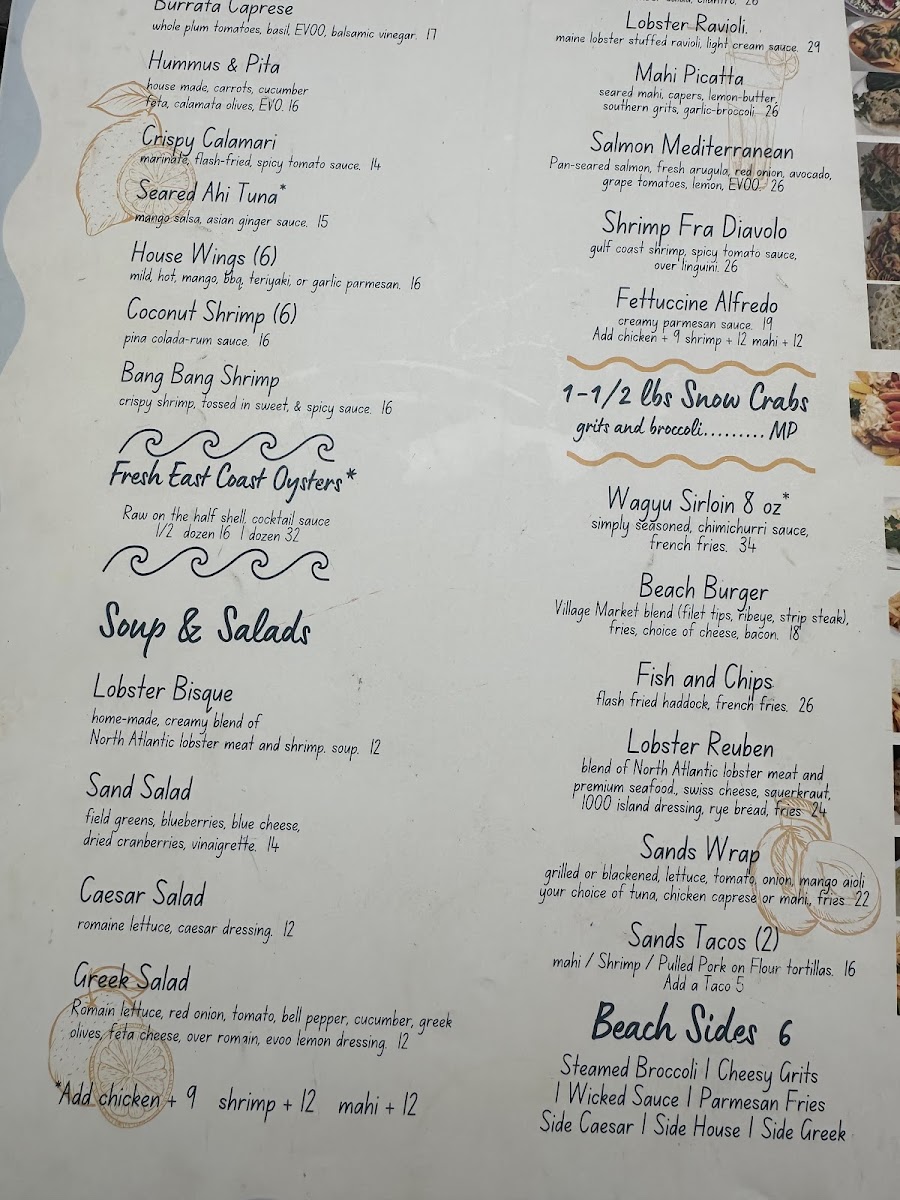 Burrata Caprese
whole plum tomatoes, basil, EVOO, balsamic vinegar. 17
Hummus & Pita
house made, carrots, cucumber
feta, calamata olives, EVO. 16
Crispy Calamari
marinate, flash-fried, spicy tomato sauce. 14
Seared Ahi Tuna*
mango salsa, asian ginger sauce. 15
House Wings (6)
mild, hot, mango, bbq, teriyaki, or garlic parmesan. 16
Coconut Shrimp (6)
pina colada-rum sauce. 16
Bang Bang Shrimp
crispy shrimp, tossed in sweet, & spicy sauce. 16
Fresh East Coast Oysters*
Raw on the half shell, cocktail sauce
1/2 dozen 16 1 dozen 32
Soup & Salads
Lobster Bisque
home-made, creamy blend of
North Atlantic lobster meat and shrimp. soup. 12
Sand Salad
field greens, blueberries, blue cheese,
dried cranberries, vinaigrette. 14
Caesar Salad
romaine lettuce, caesar dressing. 12
Greek Salad
Romain lettuce, red onion, tomato, bell pepper, cucumber, greek
olives, feta cheese, over romain, evoo lemon dressing. 12
*Add chicken + 9 shrimp + 12 mahi + 12
Lobster Ravioli.
maine lobster stuffed ravioli, light cream sauce. 29
Mahi Picatta
seared mahi, capers, lemon-butter,
southern grits, garlic-broccoli 26
Salmon Mediterranean
Pan-seared salmon, fresh arugula, red onion, avocado,
grape tomatoes, lemon, EVOO. 26
Shrimp Fra Diavolo
gulf coast shrimp, spicy tomato sauce,
over linguini. 26
Fettuccine Alfredo
creamy parmesan sauce. 19
Add chicken + 9 shrimp + 12 mahi + 12
1-1/2 lbs Snow Crabs
grits and broccoli......... MP
Wagyu Sirloin 8 oz*
simply seasoned, chimichurri sauce,
french fries. 34
Beach Burger
Village Market blend (filet tips, ribeye, strip steak),
fries, choice of cheese, bacon. 18
Fish and Chips
flash fried haddock, french fries. 26
Lobster Reuben
blend of North Atlantic lobster meat and
premium seafood., swiss cheese, sauerkraut,
1000 island dressing, rye bread, fries 24
Sands Wrap
grilled or blackened, lettuce, tomato, onion, mango aioli
your choice of tuna, chicken caprese or mahi, fries 22
Sands Tacos (2)
mahi / Shrimp / Pulled Pork on Flour tortillas. 16
Add a Taco 5
Beach Sides 6
Steamed Broccoli | Cheesy Grits
| Wicked Sauce | Parmesan Fries
Side Caesar | Side House | Side Greek